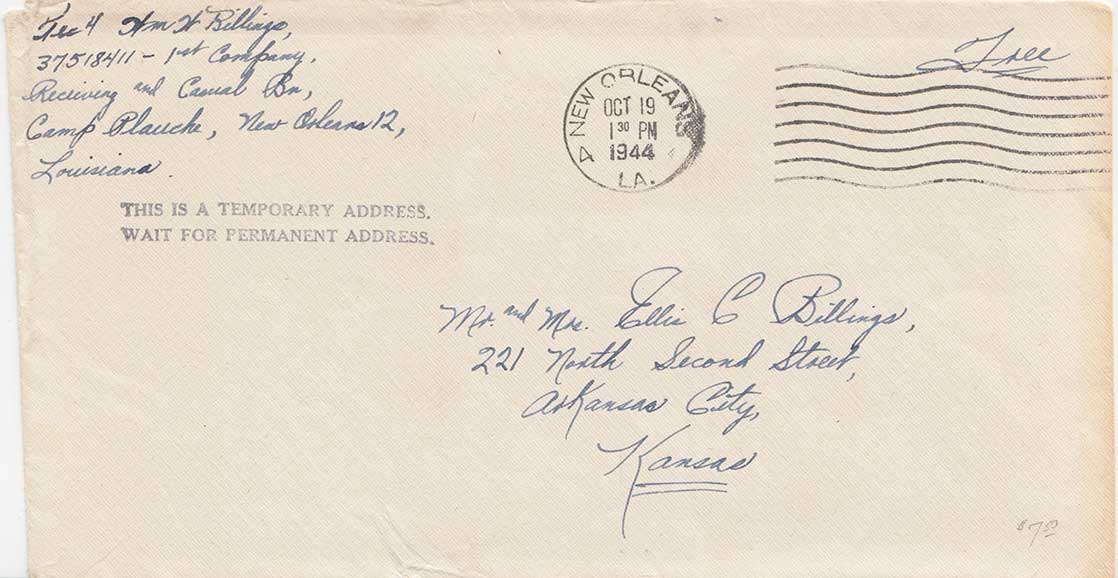 Tec 4 Wm H Billings,
37518411 - 1st Company,
Receiving and Casual Bn,
Camp Plauche, New Orleans 12,
Louisiana.
THIS IS A TEMPORARY ADDRESS.
WAIT FOR PERMANENT ADDRESS.
NEW ORLEANS
4
OCT 19
1 30 PM
1944
LA.
Free
Mr. and Mrs. Ellis C Billings,
221 North Second Street,
Arkansas City,
Kansas
$7.50